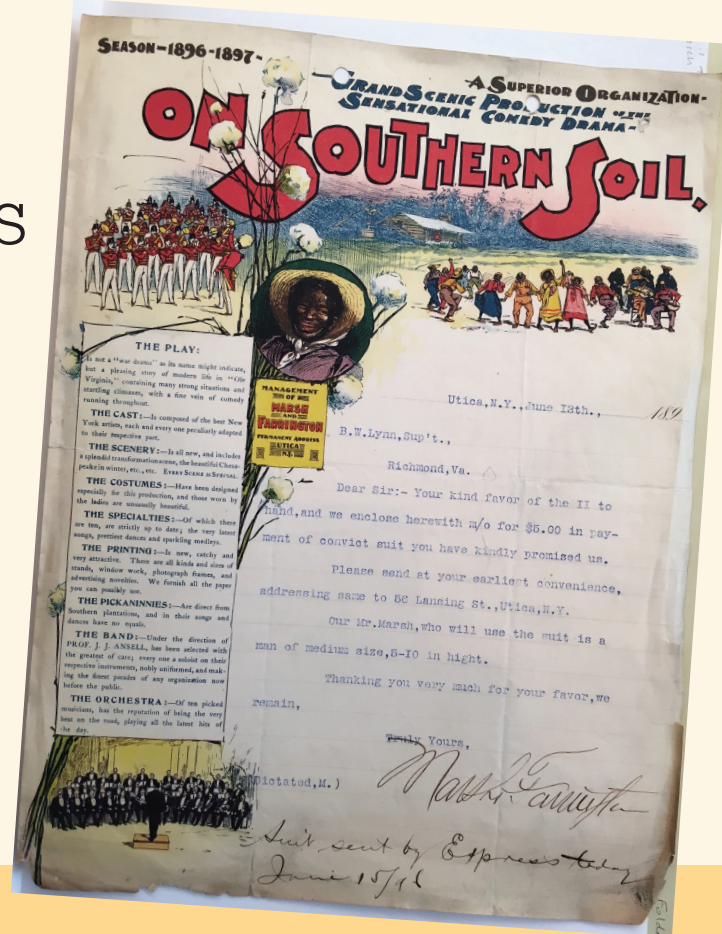 S
SEASON-1896-1897-
A SUPERIOR ORGANIZATION-
GRAND SCENIC PRODUCTION OF THE
SENSATIONAL COMEDY DRAMA-
ON SOUTHERN SOIL.
THE PLAY:
Is not a "war drama" as its name might indicate,
but a pleasing story of modern life in "Ole
Virginia," containing many strong situations and
startling climaxes, with a fine vein of comedy
running throughout.
THE CAST:—Is composed of the best New
York artists, each and every one peculiarly adapted
to their respective part.
THE SCENERY:—Is all new, and includes
a splendid transformation scene, the beautiful Chesa-
peake in winter, etc., etc. EVERY SCENE IS SPECIAL
THE COSTUMES:—Have been designed
especially for this production, and those worn by
the ladies are unusually beautiful.
THE SPECIALTIES:—Of which there
are ten, are strictly up to date; the very latest
songs, prettiest dances and sparkling medleys.
THE PRINTING:—Is new, catchy and
very attractive. There are all kinds and sizes of
stands, window work, photograph frames, and
advertising novelties. We furnish all the paper
you can possibly use.
THE PICKANINNIES:—Are direct from
Southern plantations, and in their songs and
dances have no equals.
THE BAND:—Under the direction of
PROF. J. J. ANSELL, has been selected with
the greatest of care; every one a soloist on their
respective instruments, nobly uniformed, and mak-
ing the finest parades of any organization now
before the public.
THE ORCHESTRA:—Of ten picked
musicians, has the reputation of being the very
best on the road, playing all the latest hits of
the day.
MANAGEMENT
OF
MARSH
AND
FARRINGTON
PERMANENT ADDRESS
UTICA
N.Y.
Utica,N.Y.,June 13th., 189
B.W.Lynn,Sup't.,
Richmond,Va.
Dear Sir:- Your kind favor of the II to
hand,and we enclose herewith m/o for $5.00 in pay-
ment of convict suit you have kindly promised us.
Please send at your earliest convenience,
addressing same to 56 Lansing St.,Utica,N.Y.
Our Mr.Marsh,who will use the suit is a
man of medium size,5-10 in hight.
Thanking you very much for your favor,we
remain,
Truly Yours,
Marsh & Farrington
(Dictated,M.)
Suit sent by Express today
June 15/96